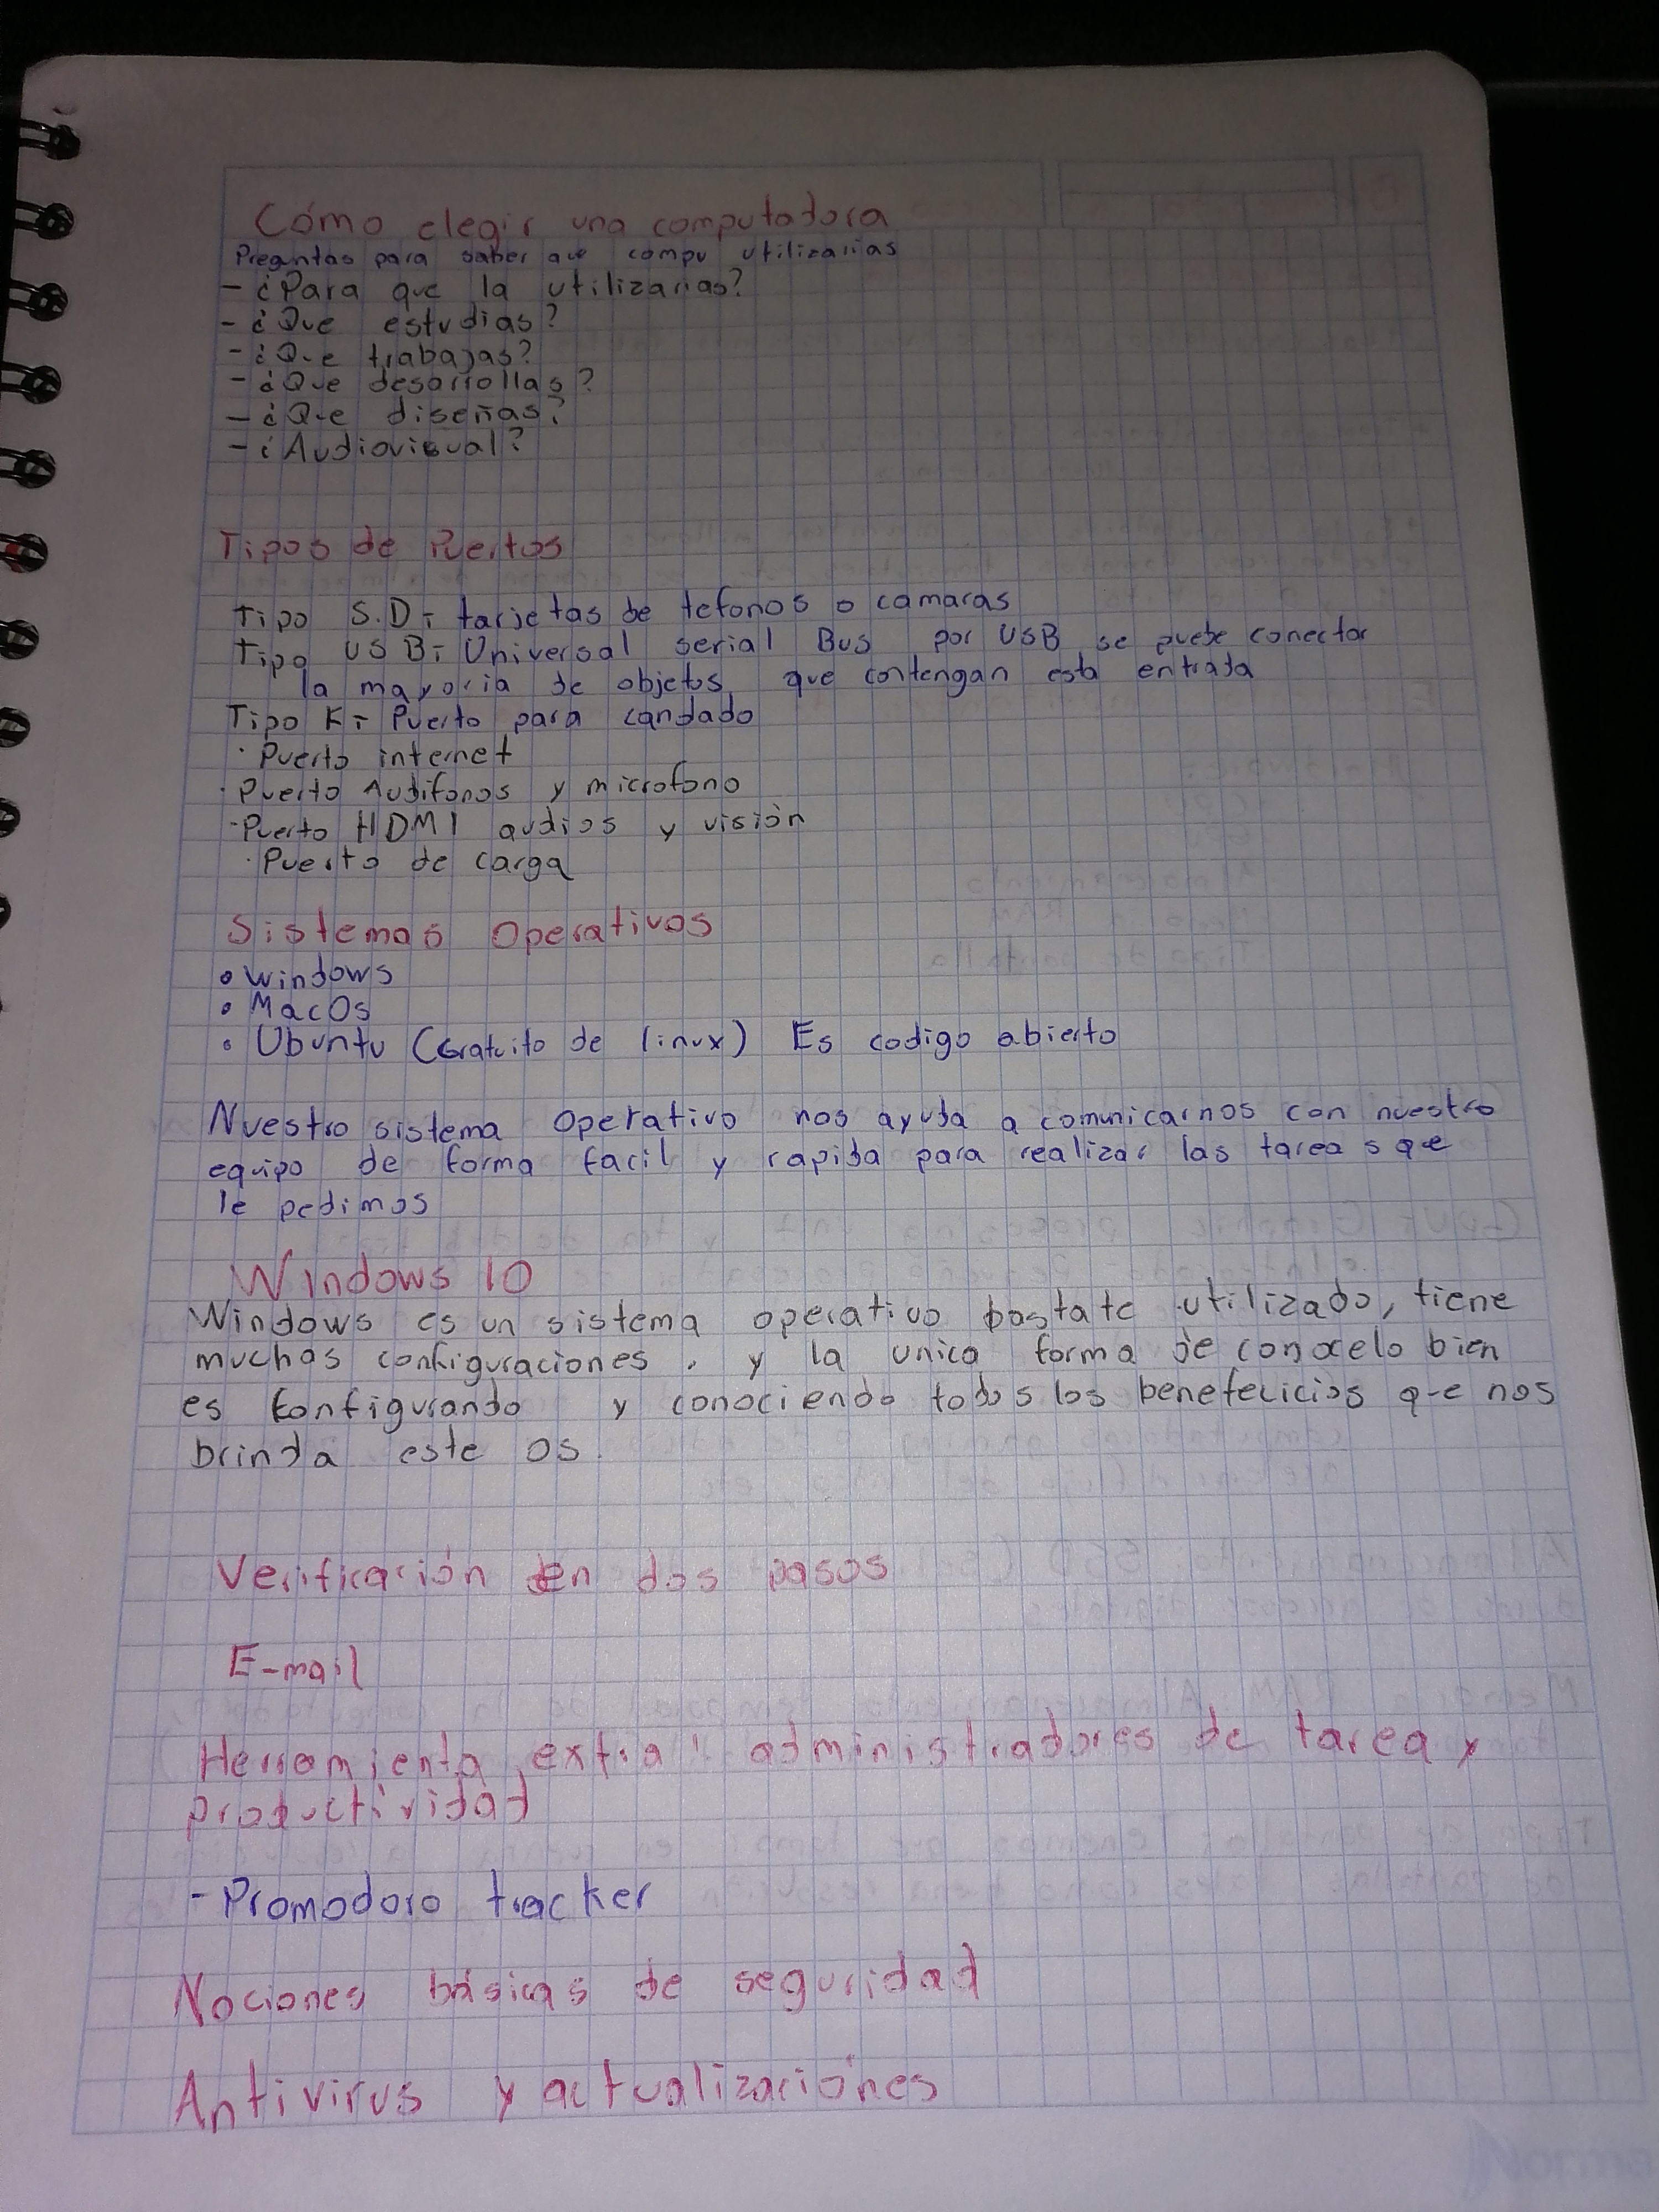 Cómo elegir una computadora
Preguntas para saber que compu utilizarias
- ¿Para que la utilizarias?
- ¿Que estudias?
- ¿Que trabajas?
- ¿Que desarrollas?
- ¿Que diseñas?
- ¿Audiovisual?
Tipos de Puertos
Tipo S.D: tarjetas de tefonos o camaras
Tipo USB: Universal serial Bus por USB se puede conector
la mayoria de objetos que contengan esta entrada
Tipo K: Puerto para candado
· Puerto internet
· Puerto Audifonos y microfono
· Puerto HDMI audios y visión
· Puerto de carga
Sistemas Operativos
• Windows
• MacOs
• Ubuntu (Gratuito de linux) Es codigo abierto
Nuestro sistema operativo nos ayuda a comunicarnos con nuestro
equipo de forma facil y rapida para realizar las tareas que
le pedimos
Windows 10
Windows es un sistema operativo bastate utilizado, tiene
muchas configuraciones, y la unica forma de conocelo bien
es configurando y conociendo todos los benefelicios que nos
brinda este OS.
Verificación en dos pasos
E-mail
Herramienta extra: administradores de tarea y
productividad
- Promodoro tracker
Nociones básicas de seguridad
Antivirus y actualizaciónes
Norma